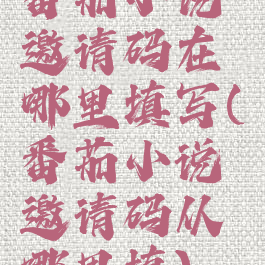 番茄小说
邀请码在
哪里填写(
番茄小说
邀请码从
哪里填)